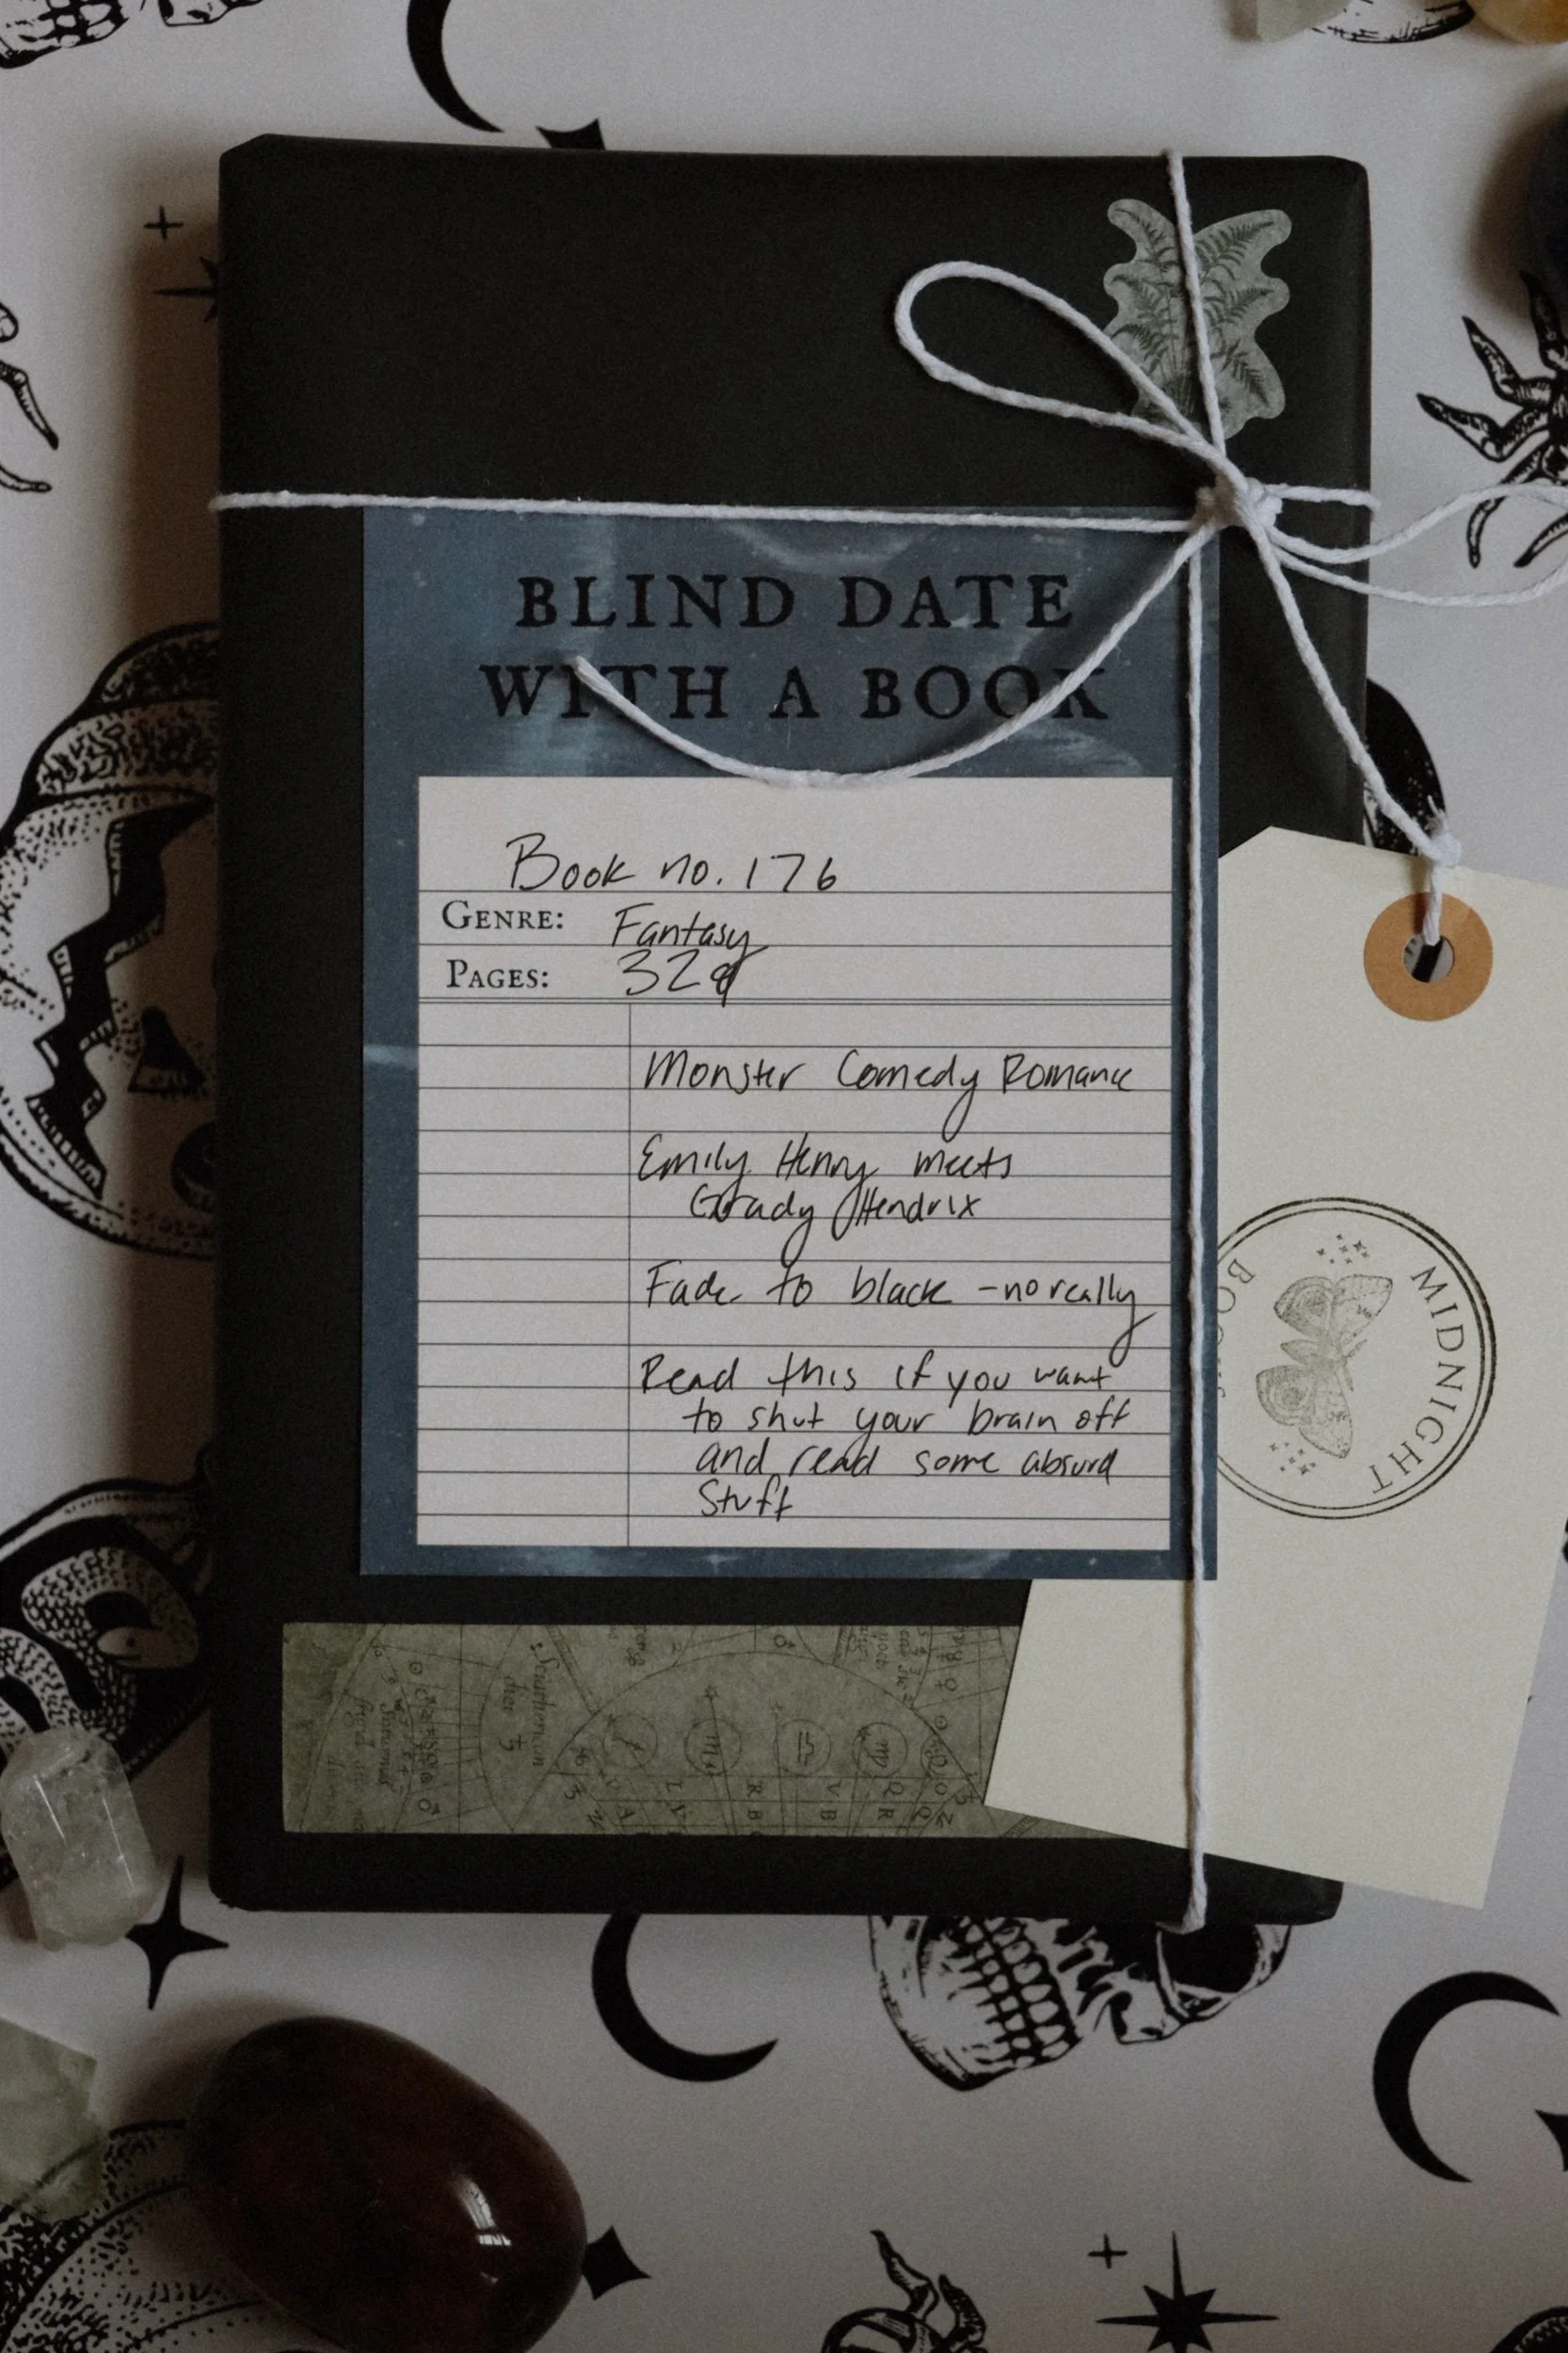 BLIND DATE
WITH A BOOK
Book no. 176
GENRE: Fantasy
PAGES: 329
Monster Comedy Romance
Emily Henry meets
Grady Hendrix
Fade to black - no really
Read this if you want
to shut your brain off
and read some absurd
Stuff
MIDNIGHT